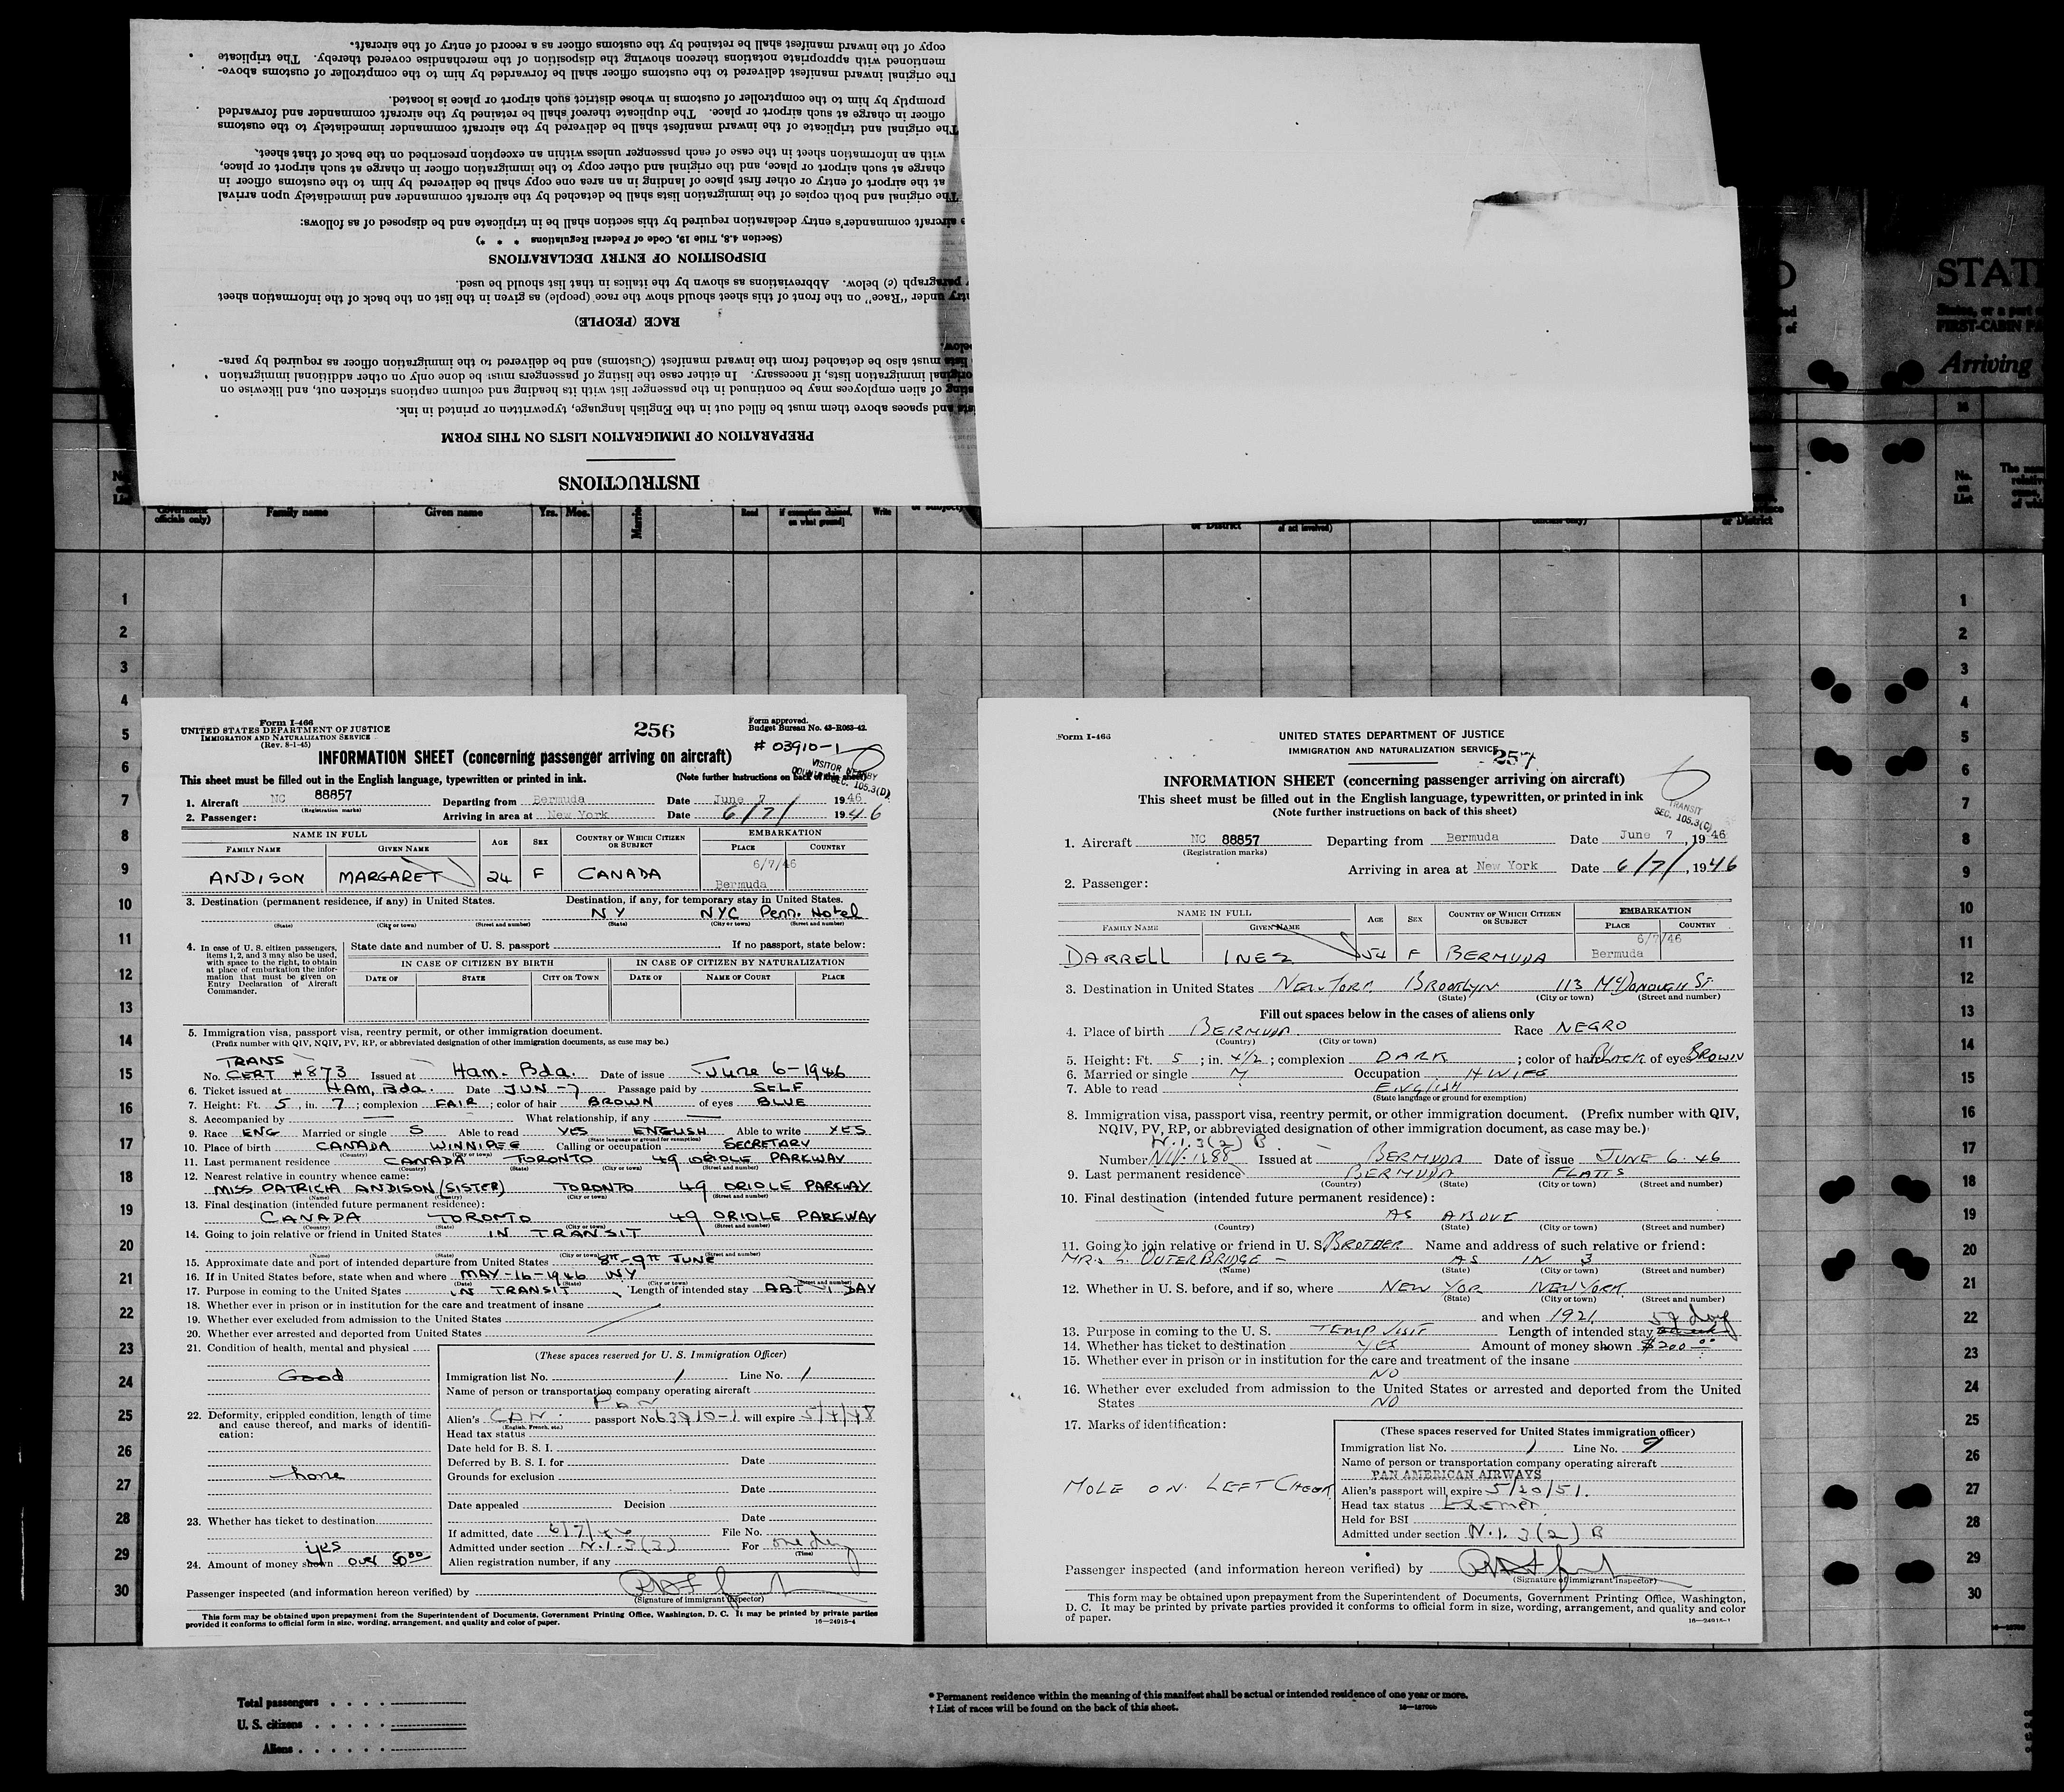 INSTRUCTIONS
PREPARATION OF IMMIGRATION LISTS ON THIS FORM
and spaces above them must be filled out in the English language, typewritten or printed in ink.
of alien employees may be continued in the passenger list with its heading and column captions stricken out, and likewise on
original immigration lists, if necessary. In either case the listing of passengers must be done only on other additional immigration
must also be detached from the inward manifest (Customs) and be delivered to the immigration officer as required by para-
below.
RACE (PEOPLE)
under "Race" on the front of this sheet should show the race (people) as given in the list on the back of the information sheet
paragraph (c) below. Abbreviations as shown by the italics in that list should be used.
DISPOSITION OF ENTRY DECLARATIONS
(Section 4.8, Title 19, Code of Federal Regulations * * *)
aircraft commander's entry declaration required by this section shall be in triplicate and be disposed of as follows:
The original and both copies of the immigration lists shall be detached by the aircraft commander and immediately upon arrival
at the airport of entry or other first place of landing in an area one copy shall be delivered by him to the customs officer in
charge at such airport or place, and the original and other copy to the immigration officer in charge at such airport or place,
with an information sheet in the case of each passenger unless within an exception prescribed on the back of that sheet.
The original and triplicate of the inward manifest shall be delivered by the aircraft commander immediately to the customs
officer in charge at such airport or place. The duplicate thereof shall be retained by the aircraft commander and forwarded
promptly by him to the comptroller of customs in whose district such airport or place is located.
The original inward manifest delivered to the customs officer shall be forwarded by him to the comptroller of customs above-
mentioned with appropriate notations thereon showing the disposition of the merchandise covered thereby. The triplicate
copy of the inward manifest shall be retained by the customs officer as a record of entry of the aircraft.
STAT
FIRST-CABIN PA
Arriving
officials only) Family name Given name Yrs. Mos. Married Read if exemption claimed, on what ground] Write or subject) or District or District
No. on List
1 2 3 4 5 6 7 8 9 10 11 12 13 14 15 16 17 18 19 20 21 22 23 24 25 26 27 28 29 30
Form I-466
UNITED STATES DEPARTMENT OF JUSTICE
IMMIGRATION AND NATURALIZATION SERVICE
(Rev. 8-1-45)
256
Form approved.
Budget Bureau No. 43-R063-42.
# 03910-1
INFORMATION SHEET (concerning passenger arriving on aircraft)
This sheet must be filled out in the English language, typewritten or printed in ink. (Note further instructions on back of this sheet)
VISITOR
SEC. 105.3(D)
1. Aircraft NC 88857 Departing from Bermuda Date June 7 1946
(Registration marks)
2. Passenger: Arriving in area at New York Date 6/7/ 1946
NAME IN FULL AGE SEX COUNTRY OF WHICH CITIZEN OR SUBJECT EMBARKATION
FAMILY NAME GIVEN NAME PLACE COUNTRY
6/7/46
ANDISON MARGARET 24 F CANADA Bermuda
3. Destination (permanent residence, if any) in United States. Destination, if any, for temporary stay in United States.
NY NYC Penn. Hotel
(State) (City or town) (Street and number) (State) (City or town) (Street and number)
4. In case of U. S. citizen passengers, items 1, 2, and 3 may also be used, with space to the right, to obtain at place of embarkation the information that must be given on Entry Declaration of Aircraft Commander.
State date and number of U. S. passport If no passport, state below:
IN CASE OF CITIZEN BY BIRTH IN CASE OF CITIZEN BY NATURALIZATION
DATE OF STATE CITY OR TOWN DATE OF NAME OF COURT PLACE
5. Immigration visa, passport visa, reentry permit, or other immigration document.
(Prefix number with QIV, NQIV, PV, RP, or abbreviated designation of other immigration document, as case may be.)
TRANS
No. CERT #873 Issued at Ham. Bda. Date of issue June 6-1946
6. Ticket issued at HAM, Bda. Date JUN -7 Passage paid by SELF
7. Height: Ft. 5 in. 7; complexion FAIR; color of hair BROWN of eyes BLUE
8. Accompanied by What relationship, if any
9. Race ENG Married or single S Able to read YES ENGLISH Able to write YES
(State language or ground for exemption)
10. Place of birth CANADA WINNIPEG Calling or occupation SECRETARY
(Country) (City or town)
11. Last permanent residence CANADA TORONTO 49 ORIOLE PARKWAY
(Country) (State) (City or town) (Street and number)
12. Nearest relative in country whence came:
MISS PATRICIA ANDISON (SISTER) TORONTO 49 ORIOLE PARKWAY
(Name) (Country) (City or town) (Street and number)
13. Final destination (intended future permanent residence):
CANADA TORONTO 49 ORIOLE PARKWAY
(Country) (State) (City or town) (Street and number)
14. Going to join relative or friend in United States IN TRANSIT
(Name) (State) (City or town) (Street and number)
15. Approximate date and port of intended departure from United States 8TH-9TH JUNE
16. If in United States before, state when and where MAY-16-1946 NY
(Date) (State) (City or town) (Street and number)
17. Purpose in coming to the United States IN TRANSIT Length of intended stay ABT 1 DAY
18. Whether ever in prison or in institution for the care and treatment of insane
19. Whether ever excluded from admission to the United States
20. Whether ever arrested and deported from United States
21. Condition of health, mental and physical
Good
22. Deformity, crippled condition, length of time and cause thereof, and marks of identification:
none
23. Whether has ticket to destination
yes
24. Amount of money shown over 50.00
(These spaces reserved for U. S. Immigration Officer)
Immigration list No. 1 Line No. 1
Name of person or transportation company operating aircraft
PAN
Alien's CAN. passport No. 63910-1 will expire 5/4/48
(English, French, etc.)
Head tax status
Date held for B. S. I.
Deferred by B. S. I. for Date
Grounds for exclusion
Date
Date appealed Decision
Date
If admitted, date 6/7/46 File No.
Admitted under section N.1.3(3) For one day
(Time)
Alien registration number, if any
Passenger inspected (and information hereon verified) by
(Signature of immigrant inspector)
This form may be obtained upon prepayment from the Superintendent of Documents, Government Printing Office, Washington, D. C. It may be printed by private parties
provided it conforms to official form in size, wording, arrangement, and quality and color of paper. 16—24915-4
Form I-466
UNITED STATES DEPARTMENT OF JUSTICE
IMMIGRATION AND NATURALIZATION SERVICE
257
INFORMATION SHEET (concerning passenger arriving on aircraft)
This sheet must be filled out in the English language, typewritten, or printed in ink
(Note further instructions on back of this sheet)
TRANSIT
SEC. 105.3(C)
1. Aircraft NC 88857 Departing from Bermuda Date June 7, 1946
(Registration marks)
Arriving in area at New York Date 6/7/, 1946
2. Passenger:
NAME IN FULL AGE SEX COUNTRY OF WHICH CITIZEN OR SUBJECT EMBARKATION
FAMILY NAME GIVEN NAME PLACE COUNTRY
6/7/46
DARRELL INEZ 54 F BERMUDA Bermuda
3. Destination in United States NEW YORK BROOKLYN 113 McDONOUGH ST.
(State) (City or town) (Street and number)
Fill out spaces below in the cases of aliens only
4. Place of birth BERMUDA Race NEGRO
(Country) (City or town)
5. Height: Ft. 5; in. 4½; complexion DARK; color of hair BLACK of eyes BROWN
6. Married or single M Occupation H WIFE
7. Able to read ENGLISH
(State language or ground for exemption)
8. Immigration visa, passport visa, reentry permit, or other immigration document. (Prefix number with QIV,
NQIV, PV, RP, or abbreviated designation of other immigration document, as case may be.)
N.1.3(2) B
Number NIV. 1488 Issued at BERMUDA Date of issue JUNE 6. 46
9. Last permanent residence BERMUDA FLATTS
(Country) (State) (City or town) (Street and number)
10. Final destination (intended future permanent residence):
AS ABOVE
(Country) (State) (City or town) (Street and number)
11. Going to join relative or friend in U. S. BROTHER Name and address of such relative or friend:
OUTERBRIDGE — AS IN 3
(Name) (State) (City or town) (Street and number)
12. Whether in U. S. before, and if so, where NEW YOR NEW YORK
(State) (City or town) (Street and number)
and when 1921
13. Purpose in coming to the U. S. TEMP VISIT Length of intended stay 59 days
14. Whether has ticket to destination YES Amount of money shown $200.00
15. Whether ever in prison or in institution for the care and treatment of the insane
NO
16. Whether ever excluded from admission to the United States or arrested and deported from the United
States NO
17. Marks of identification:
MOLE ON LEFT CHEEK
(These spaces reserved for United States immigration officer)
Immigration list No. 1 Line No. 9
Name of person or transportation company operating aircraft
PAN AMERICAN AIRWAYS
Alien's passport will expire 5/20/51.
Head tax status Exempt
Held for BSI
Admitted under section N.1.3(2) B
Passenger inspected (and information hereon verified) by
(Signature of immigrant inspector)
This form may be obtained upon prepayment from the Superintendent of Documents, Government Printing Office, Washington,
D. C. It may be printed by private parties provided it conforms to official form in size, wording, arrangement, and quality and color
of paper. 16—24915-1
Total passengers
U. S. citizens
Aliens
* Permanent residence within the meaning of this manifest shall be actual or intended residence of one year or more.
† List of races will be found on the back of this sheet.